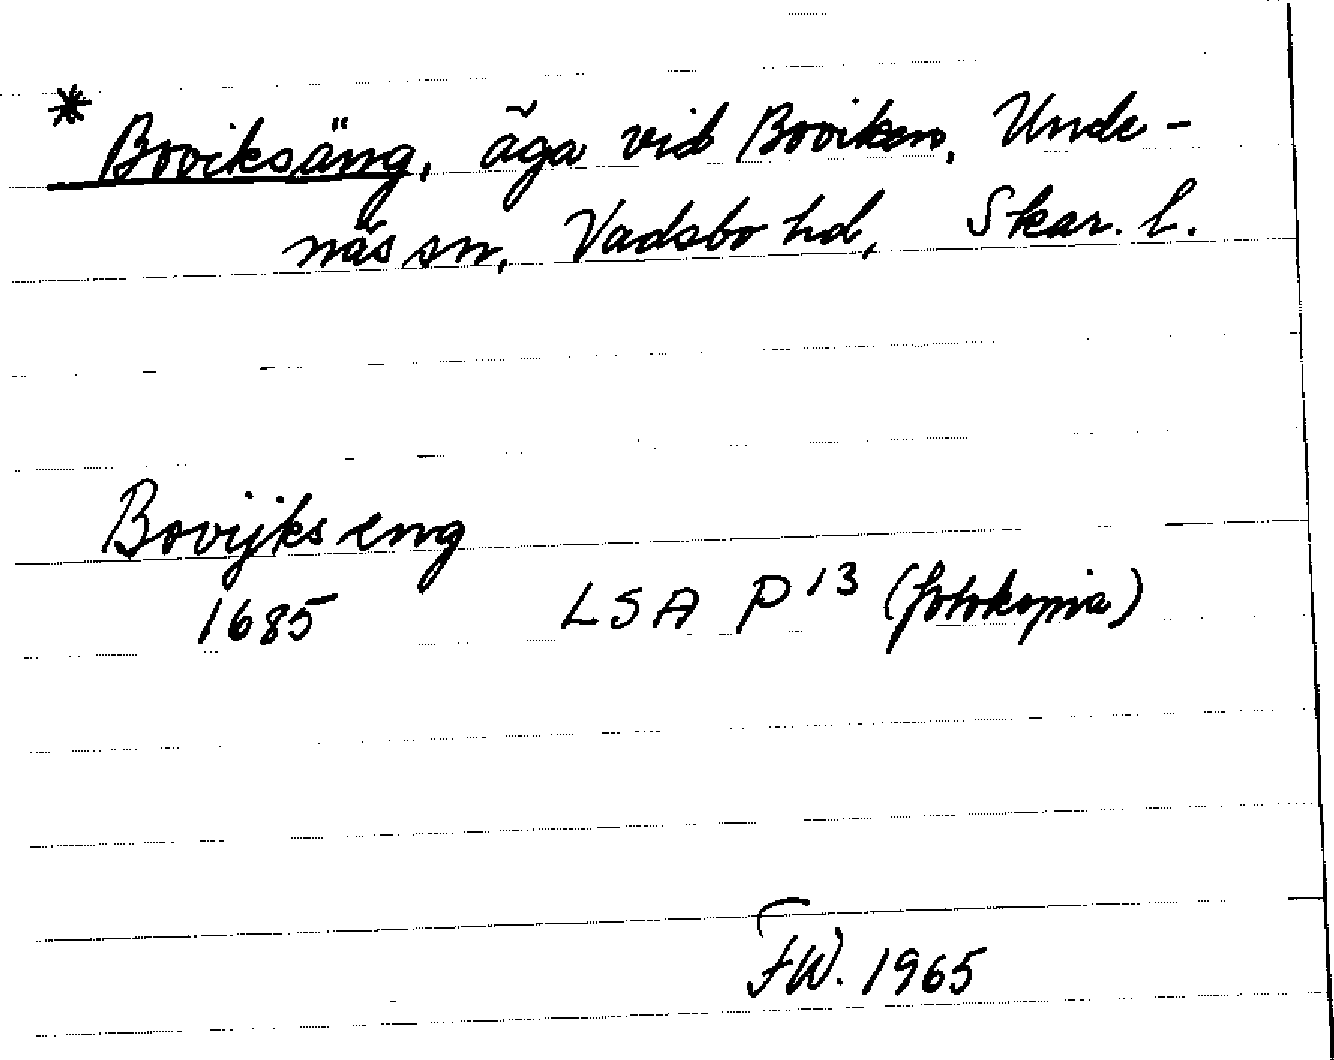 * Boviksäng, äga vid Boviken, Unde-
näs sn, Vadsbo hd, Skar. l.
Bovijks eng
1685 LSA P 13 (fotokopia)
FW. 1965